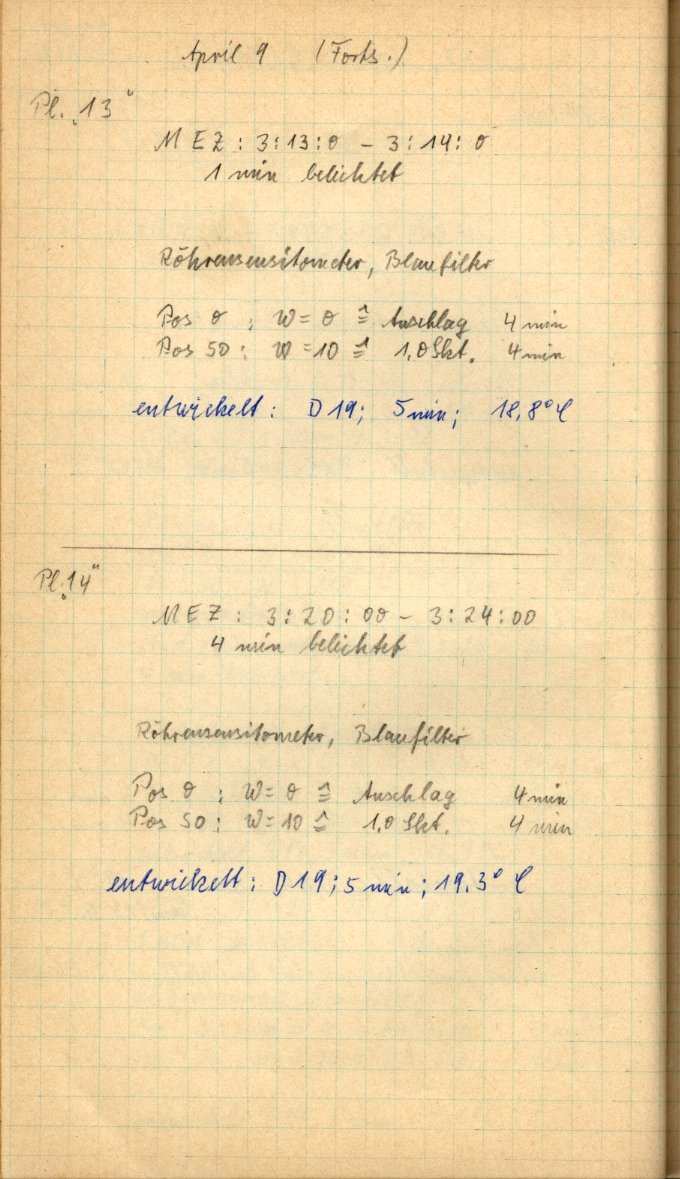 April 9 (Forts.)
Pl. „13“
MEZ : 3:13:0 – 3:14:0
1 min belichtet
Röhrensensitometer, Blaufilter
Pos 0 : W = 0 ≙ Anschlag 4 min
Pos 50 : W = 10 ≙ 1,0 Skt. 4 min
entwickelt : D 19 ; 5 min ; 18,8° C
Pl. „14“
MEZ : 3:20:00 – 3:24:00
4 min belichtet
Röhrensensitometer, Blaufilter
Pos 0 : W = 0 ≙ Anschlag 4 min
Pos 50 : W = 10 ≙ 1,0 Skt. 4 min
entwickelt : D 19 ; 5 min ; 19.3° C